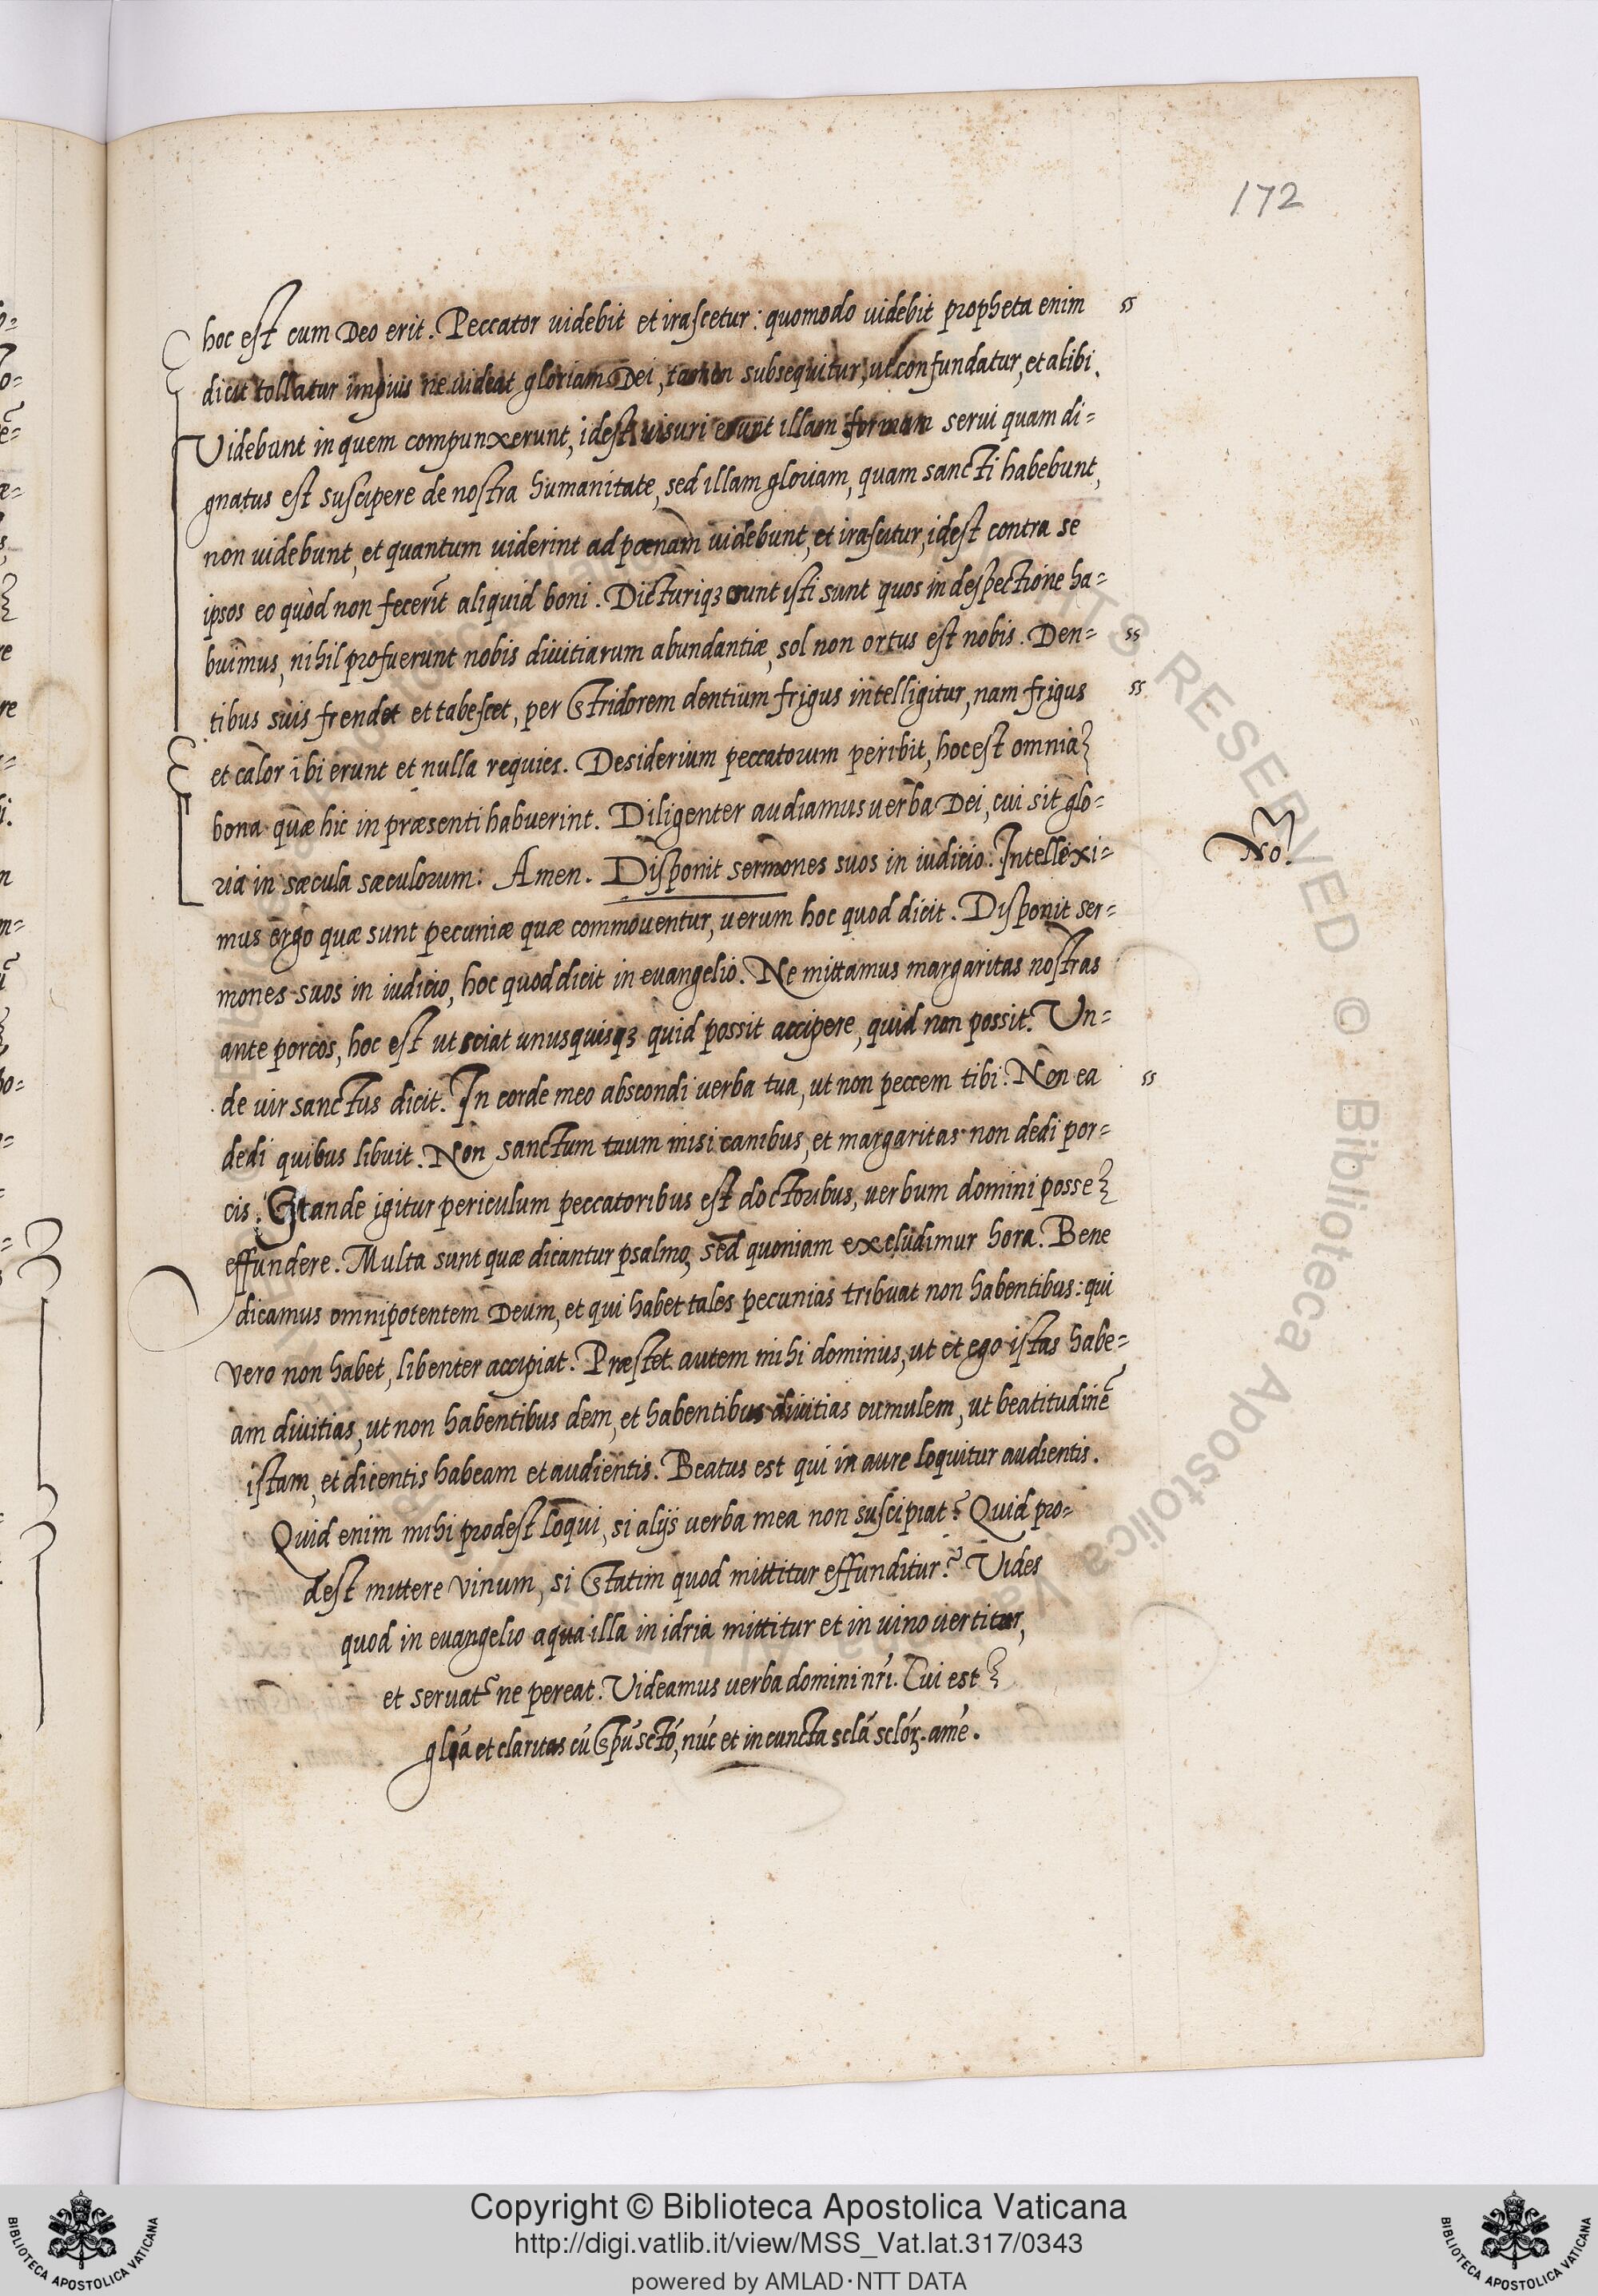 172
hoc est cum Deo erit. Peccator uidebit et irascetur: quomodo uidebit propheta enim
dicit tollatur impius ne uideat gloriam Dei, tamen subsequitur, ut confundatur, et alibi.
Videbunt in quem compunxerunt, idest uisuri erunt illam formam serui quam di=
gnatus est suscipere de nostra humanitate, sed illam gloriam, quam sancti habebunt,
non uidebunt, et quantum uiderint ad pœnam uidebunt, et irascutur, idest contra se
ipsos eo quòd non fecerīt aliquid boni. Dicturiqꝫ sunt isti sunt quos in despectione ha=
buimus, nihil profuerunt nobis diuitiarum abundantiæ, sol non ortus est nobis. Den=
tibus suis frendet et tabescet, per Stridorem dentium frigus intelligitur, nam frigus
et calor ibi erunt et nulla requies. Desiderium peccatorum peribit, hoc est omnia
bona quæ hic in præsenti habuerint. Diligenter audiamus uerba Dei, cui sit glo=
ria in sæcula sæculorum: Amen. Disponit sermones suos in iudicio. Intellexi=
No.
mus ergo quæ sunt pecuniæ quæ commouentur, uerum hoc quod dicit. Disponit ser=
mones suos in iudicio, hoc quod dicit in euangelio. Ne mittamus margaritas nostras
ante porcos, hoc est ut sciat unusquisqꝫ quid possit accipere, quid non possit. Un=
de uir sanctus dicit. In corde meo abscondi uerba tua, ut non peccem tibi. Non ea
dedi quibus libuit. Non sanctum tuum misi canibus, et margaritas non dedi por=
cis. Grande igitur periculum peccatoribus est doctoribus, uerbum domini posse
effundere. Multa sunt quæ dicantur psalmo, sed quoniam excludimur hora. Bene
dicamus omnipotentem Deum, et qui habet tales pecunias tribuat non habentibus: qui
vero non habet, libenter accipiat. Præstet autem mihi dominus, ut et ego istas habe=
am diuitias, ut non habentibus dem, et habentibus diuitias cumulem, ut beatitudinē
istam, et dicentis habeam et audientis. Beatus est qui in aure loquitur audientis.
Quid enim mihi prodest loqui, si alijs uerba mea non suscipiat? Quid pro=
dest mittere vinum, si Statim quod mittitur effunditur? Vides
quod in euangelio aqua illa in idria mittitur et in uino uertitur,
et seruat~ ne pereat. Videamus uerba domini nr̃i. Cui est
glqá et claritas cū Spū sctō, nūc et in cuncta sclá sclóꝝ. amē.
Copyright © Biblioteca Apostolica Vaticana
http://digi.vatlib.it/view/MSS_Vat.lat.317/0343
powered by AMLAD·NTT DATA
BIBLIOTECA APOSTOLICA VATICANA
BIBLIOTECA APOSTOLICA VATICANA